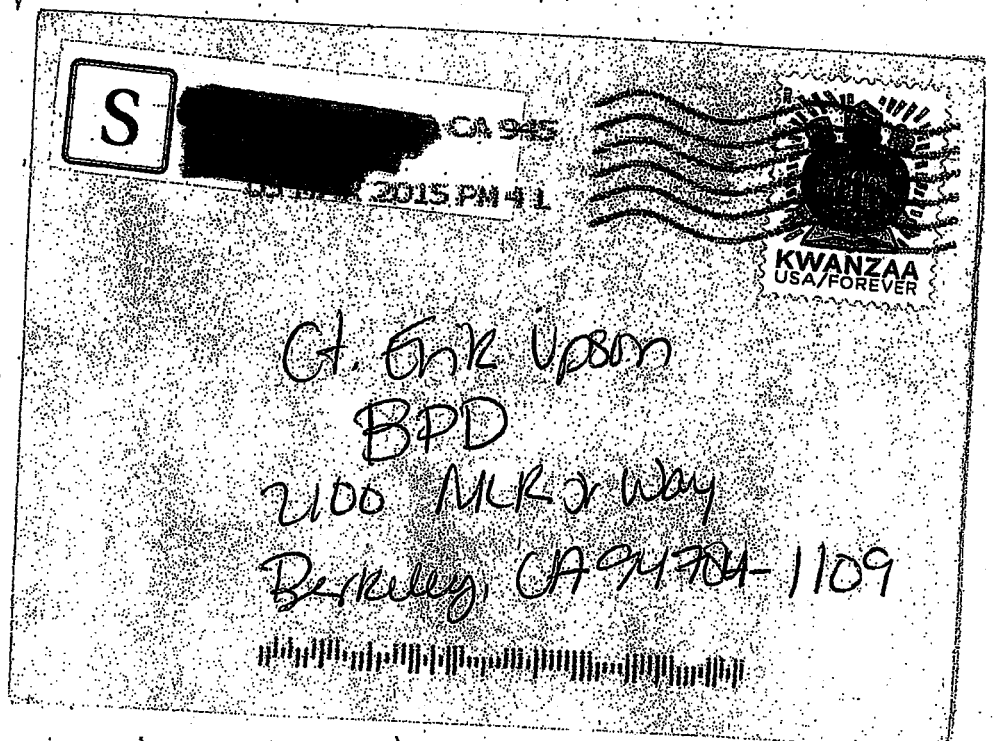 S
CA 945
2015 PM 4 L
KWANZAA
USA/FOREVER
Ct. Erik Upson
BPD
2100 MLK Jr Way
Berkeley, CA 94704-1109